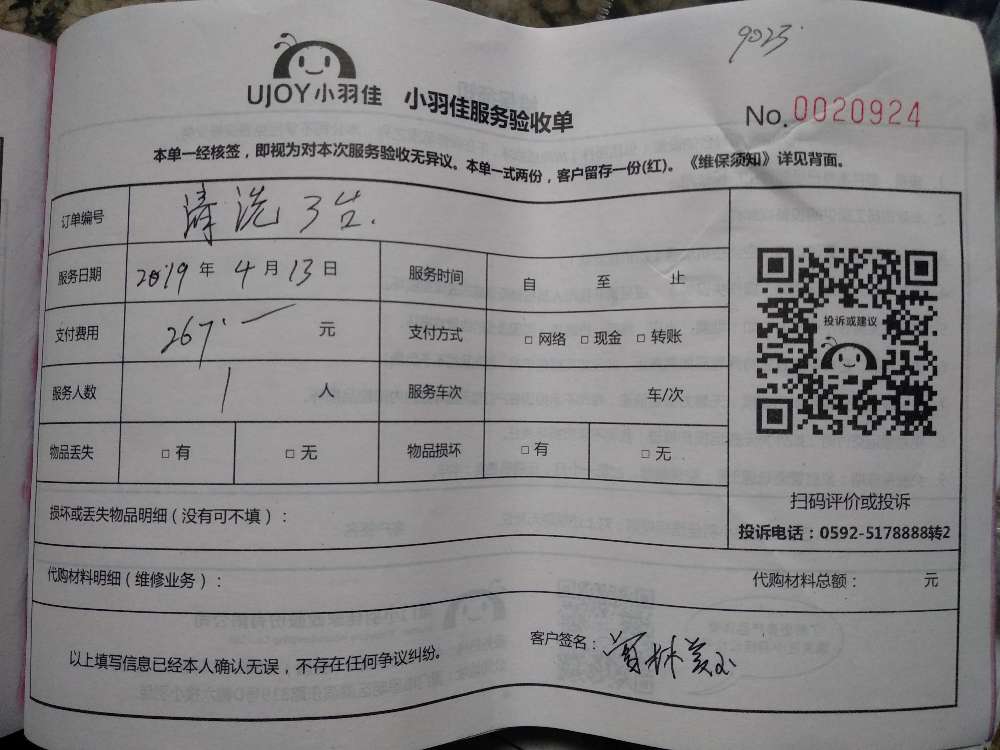 9023
UJOY小羽佳 小羽佳服务验收单
No.0020924
本单一经核签，即视为对本次服务验收无异议。本单一式两份，客户留存一份(红)。《维保须知》详见背面。
订单编号 清洗3台.
服务日期 2019年4月13日 服务时间 自 至 止
支付费用 267. 元 支付方式 □网络 □现金 □转账
投诉或建议
服务人数 1 人 服务车次 车/次
物品丢失 □有 □无 物品损坏 □有 □无
扫码评价或投诉
损坏或丢失物品明细（没有可不填）：
投诉电话：0592-5178888转2
代购材料明细（维修业务）： 代购材料总额： 元
以上填写信息已经本人确认无误，不存在任何争议纠纷。 客户签名：